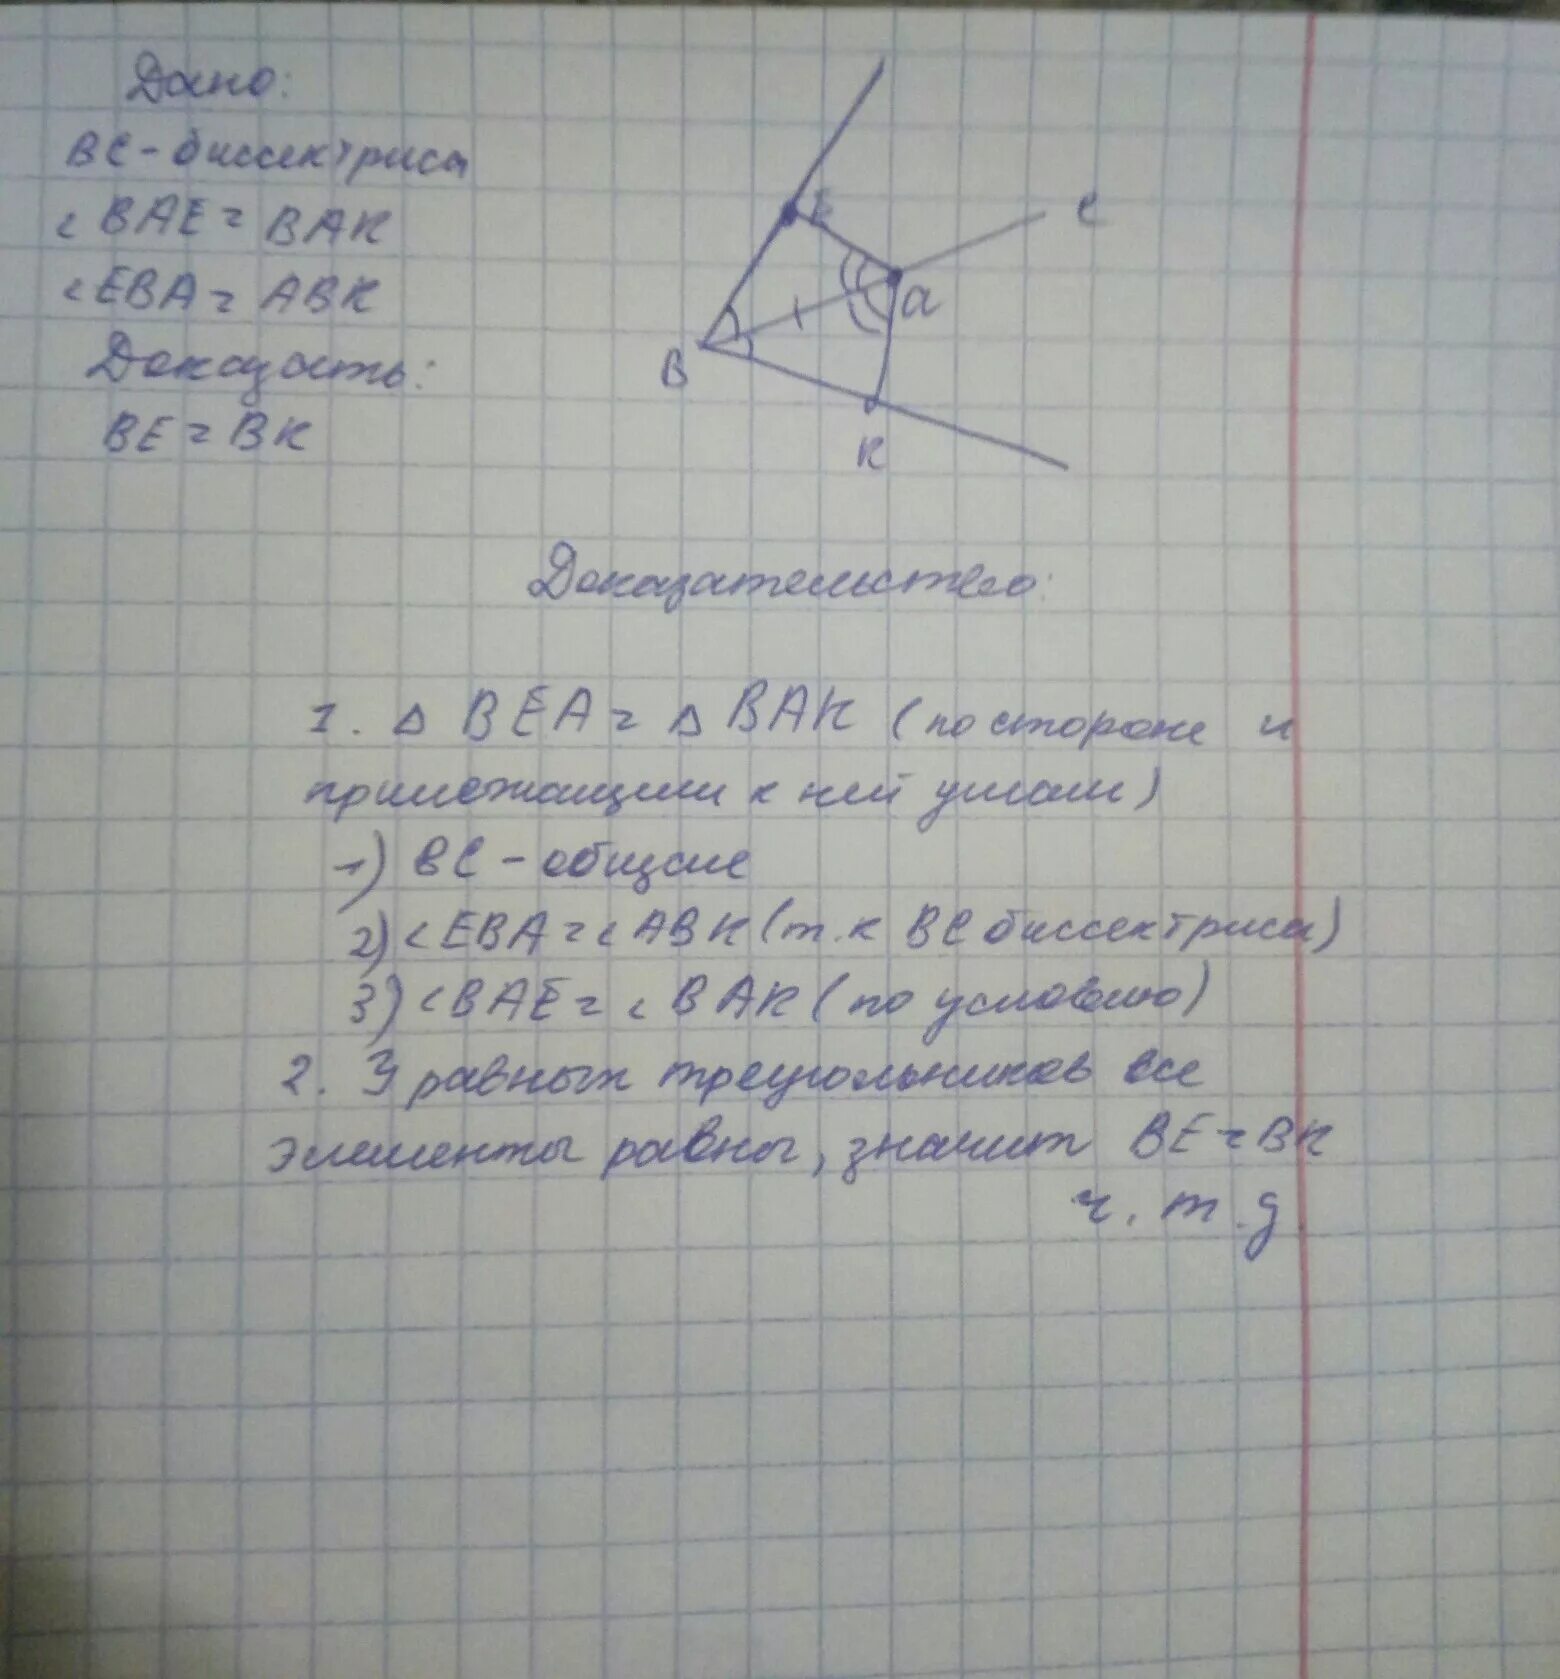 Дано:
BC - биссектриса
∠BAE = BAK
∠EBA = ABK
Доказать:
BE = BK
E
C
a
B
K
Доказательство:
1. △ BEA = △ BAK (по стороне и
прилежащим к ней углам)
1) BC - общая
2) ∠EBA = ∠ABK (т.к BC биссектриса)
3) ∠BAE = ∠BAK (по условию)
2. У равных треугольников все
элементы равны, значит BE = BK
ч. т. д